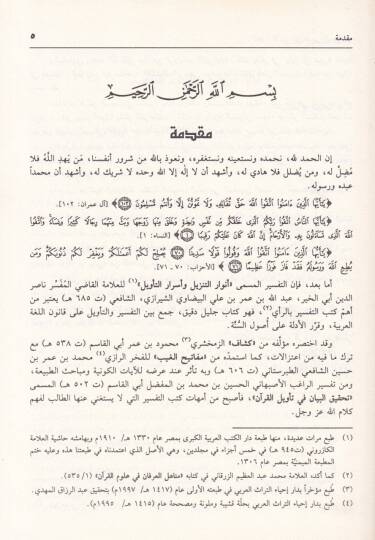 مقدمة
٥
بسم الله الرحمن الرحيم
مقدمة
إن الحمد لله، نحمده ونستعينه ونستغفره، ونعوذ بالله من شرور أنفسنا، مَن يَهدِ اللَّهُ فلا
مُضِلَّ له، ومن يُضلل فلا هادي له، وأشهد أن لا إله إلا الله وحده لا شريك له، وأشهد أن محمداً
عبده ورسوله.
﴿يَٰٓأَيُّهَا ٱلَّذِينَ ءَامَنُوا۟ ٱتَّقُوا۟ ٱللَّهَ حَقَّ تُقَاتِهِۦ وَلَا تَمُوتُنَّ إِلَّا وَأَنتُم مُّسْلِمُونَ ﴾ [آل عمران: ١٠٢].
﴿يَٰٓأَيُّهَا ٱلنَّاسُ ٱتَّقُوا۟ رَبَّكُمُ ٱلَّذِى خَلَقَكُم مِّن نَّفْسٍ وَٰحِدَةٍ وَخَلَقَ مِنْهَا زَوْجَهَا وَبَثَّ مِنْهُمَا رِجَالًا كَثِيرًا وَنِسَآءً وَٱتَّقُوا۟
ٱللَّهَ ٱلَّذِى تَسَآءَلُونَ بِهِۦ وَٱلْأَرْحَامَ إِنَّ ٱللَّهَ كَانَ عَلَيْكُمْ رَقِيبًا ﴾ [النساء: ١].
﴿يَٰٓأَيُّهَا ٱلَّذِينَ ءَامَنُوا۟ ٱتَّقُوا۟ ٱللَّهَ وَقُولُوا۟ قَوْلًا سَدِيدًا ﴿٧٠﴾ يُصْلِحْ لَكُمْ أَعْمَٰلَكُمْ وَيَغْفِرْ لَكُمْ ذُنُوبَكُمْ وَمَن
يُطِعِ ٱللَّهَ وَرَسُولَهُۥ فَقَدْ فَازَ فَوْزًا عَظِيمًا ﴿٧١﴾﴾ [الأحزاب: ٧٠ ـ ٧١].
أما بعد، فإن التفسير المسمى «أنوار التنزيل وأسرار التأويل»(١) للعلامة القاضي المُفَسِّر ناصر
الدين أبي الخير، عبد الله بن عمر بن علي البيضاوي الشيرازي، الشافعي (ت ٦٨٥ هـ) يعتبر من
أهمّ كتب التفسير بالرأي(٢)، فهو كتاب جليل دقيق، جمع بين التفسير والتأويل على قانون اللغة
العربية، وقرّر الأدلة على أصول السنَّة.
وقد اختصره مؤلّفه من «كشاف» الزمخشري(٣) محمود بن عمر أبي القاسم (ت ٥٣٨ هـ) مع
ترك ما فيه من اعتزالات، كما استمدّه من «مفاتيح الغيب» للفخر الرازي(٤) محمد بن عمر بن
حسين الشافعي الطبرستاني (ت ٦٠٦ هـ) وبه تأثر عند عرضه للآيات الكونية ومباحث الطبيعة،
ومن تفسير الراغب الأصبهاني الحسين بن محمد بن المفضل أبي القاسم (ت ٥٠٢ هـ) المسمى
«تحقيق البيان في تأويل القرآن»، فأصبح من أمهات كتب التفسير التي لا يستغني عنها الطالب لفهم
كلام الله عز وجل.
(١) طبع مرات عديدة، منها طبعة دار الكتب العربية الكبرى بمصر عام ١٣٣٠ هـ/ ١٩١٠م وبهامشه حاشية العلامة
الكازروني (ت٩٤٥ هـ) في خمس أجزاء في مجلدين، وهي الأصل الذي اعتمدناه في طبعتنا هذه وعليه ختم
المطبعة الميمنيّة بمصر عام ١٣٠٦.
(٢) كما أكد، العلامة محمد عبد العظيم الزرقاني في كتابه «مناهل العرفان في علوم القرآن» (١/ ٥٣٥).
(٣) طُبع مؤخراً بدار إحياء التراث العربي في طبعته الأولى عام (١٤١٧ هـ/ ١٩٩٧م) بتحقيق عبد الرزاق المهدي.
(٤) طُبع بدار إحياء التراث العربي بحلّة قشيبة وملونة ومصححة عام (١٤١٥ هـ/ ١٩٩٥م).